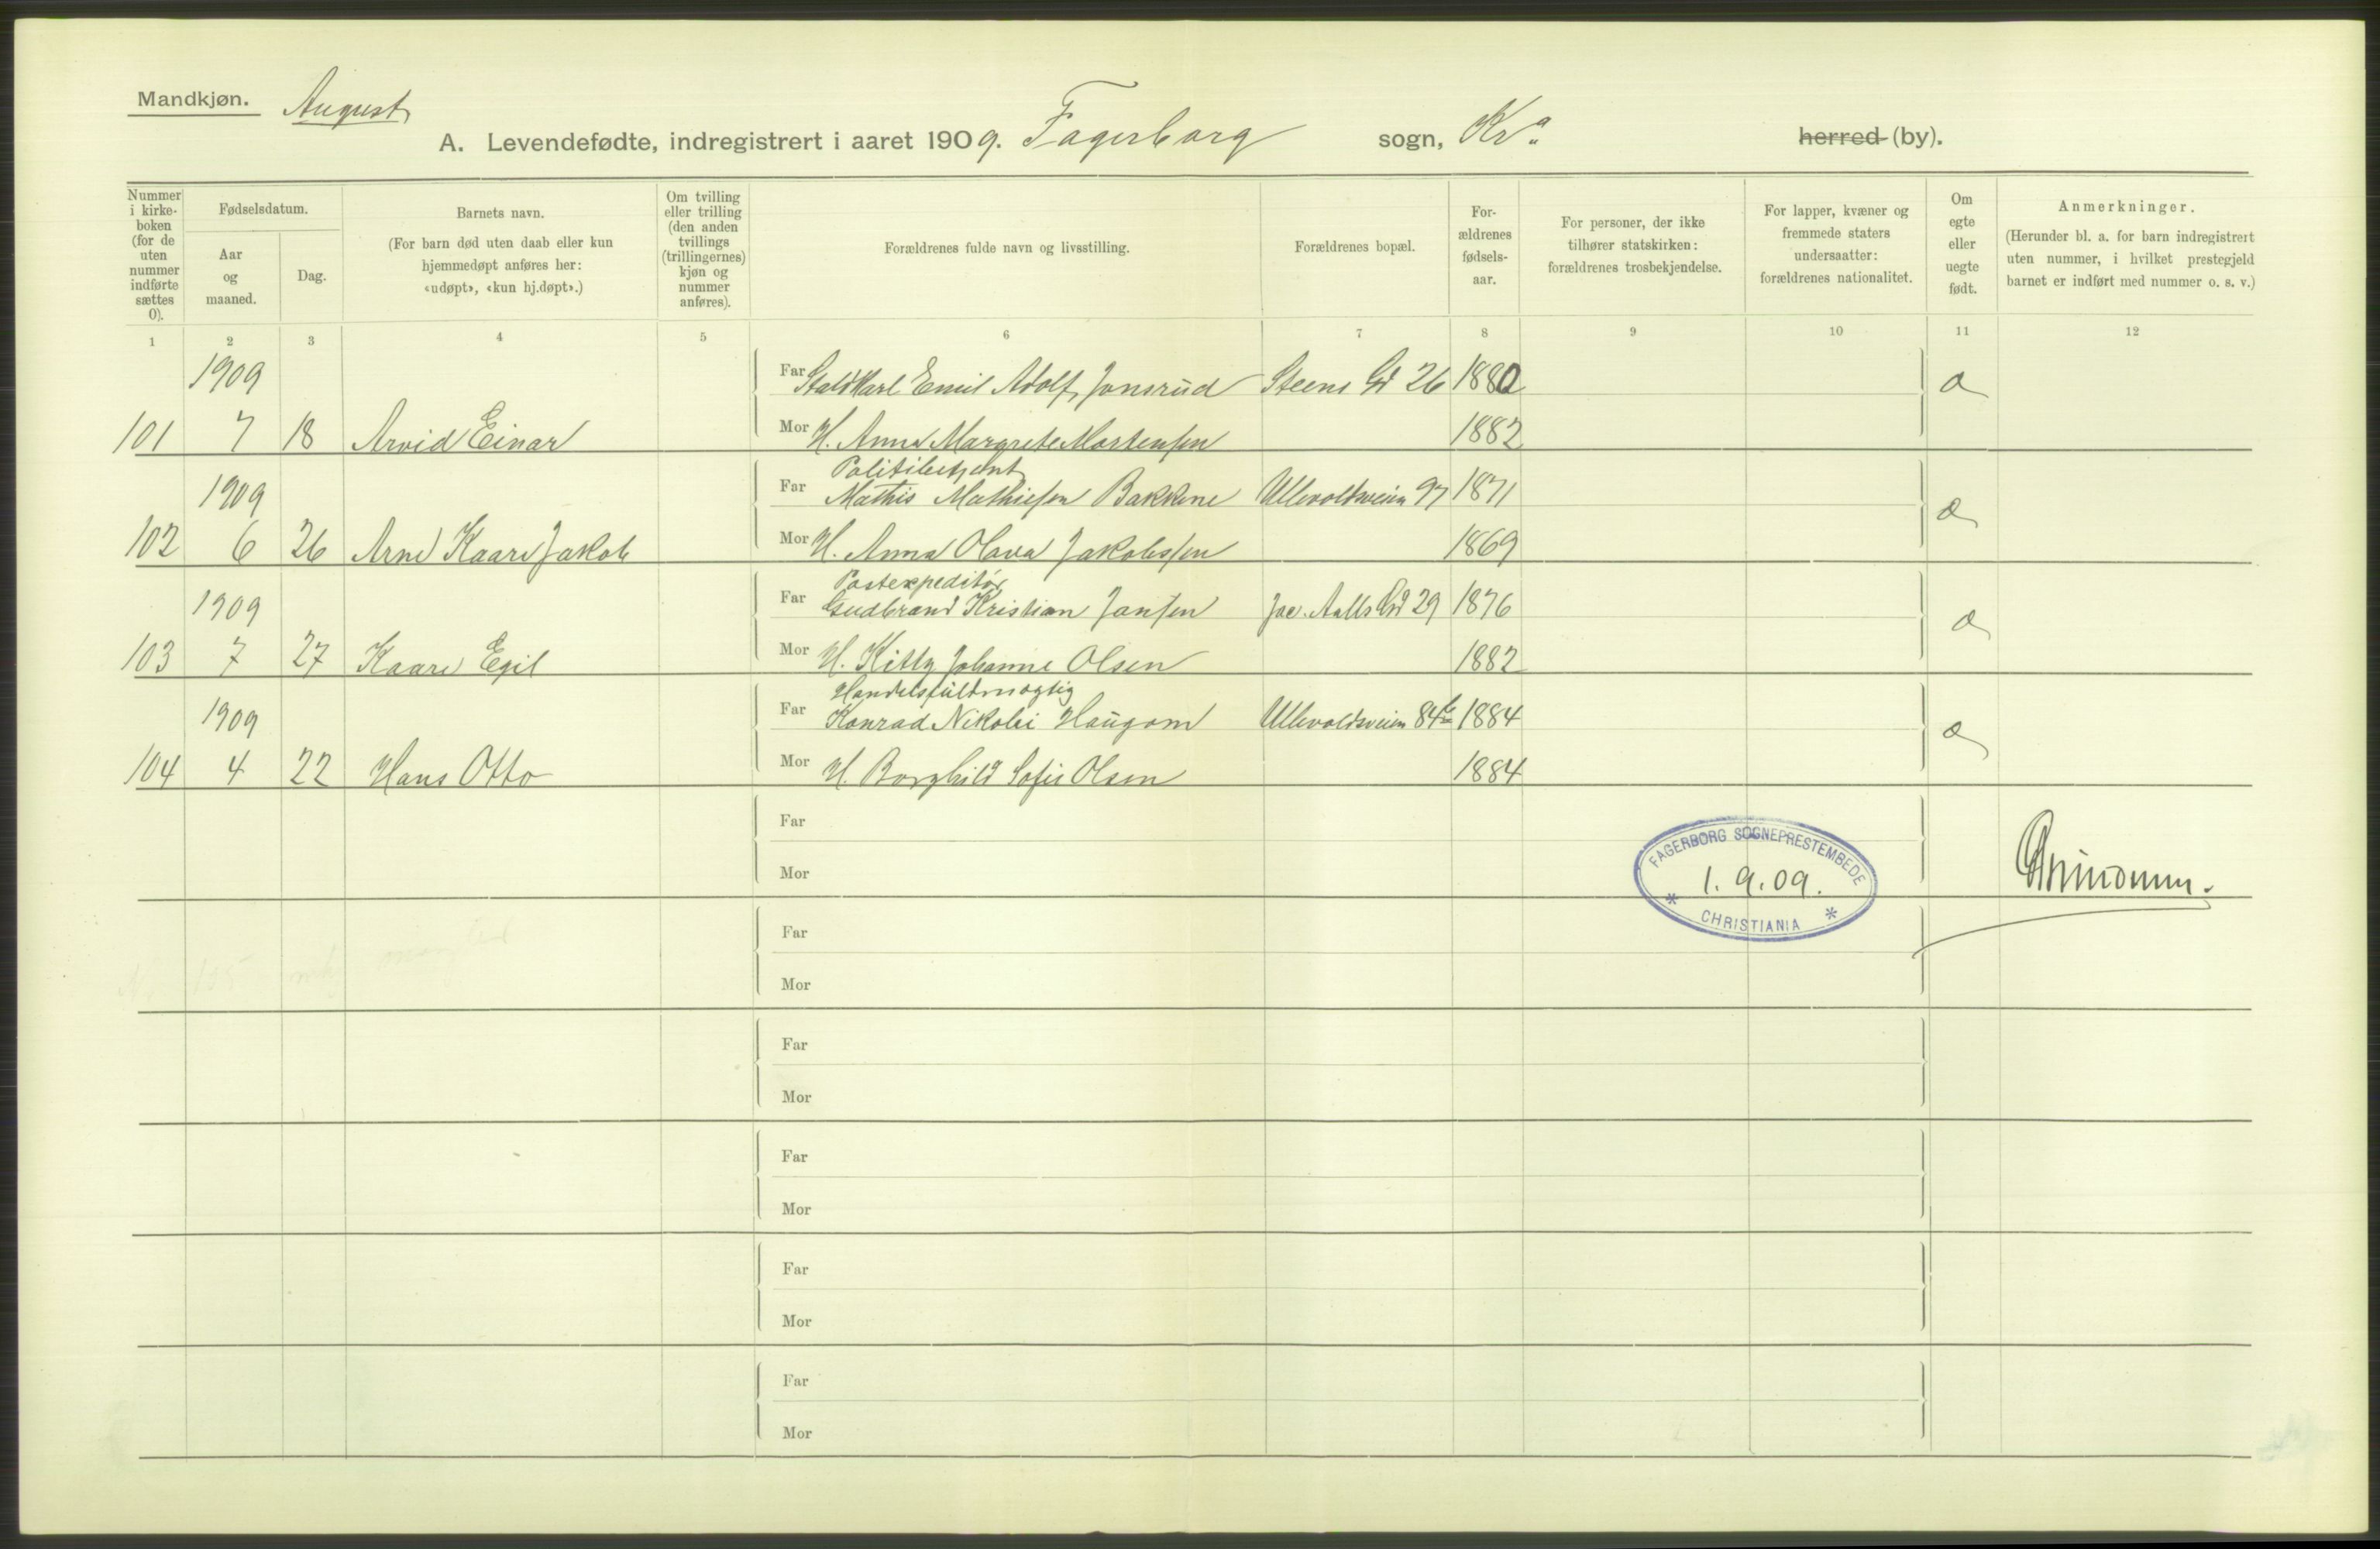 Mandkjøn. August
A. Levendefødte, indregistrert i aaret 1909. Fagerborg sogn, Kra. herred (by).
Nummer
i kirke-
boken
(for de
uten
nummer
indførte
sættes
0).
Fødselsdatum.
Aar
og
maaned.
Dag.
Barnets navn.
(For barn død uten daab eller kun
hjemmedøpt anføres her:
«udøpt», «kun hj.døpt».)
Om tvilling
eller trilling
(den anden
tvillings
(trillingernes)
kjøn og
nummer
anføres).
Forældrenes fulde navn og livsstilling.
Forældrenes bopæl.
For-
ældrenes
fødsels-
aar.
For personer, der ikke
tilhører statskirken:
forældrenes trosbekjendelse.
For lapper, kvæner og
fremmede staters
undersaatter:
forældrenes nationalitet.
Om
egte
eller
uegte
født.
Anmerkninger.
(Herunder bl. a. for barn indregistrert
uten nummer, i hvilket prestegjeld
barnet er indført med nummer o. s. v.)
1 2 3 4 5 6 7 8 9 10 11 12
1909 Far Karl Emil Adolf Jonsrud Steens Gd 26 1880
101 7 18 Arvid Einar Mor H. Anna Margrete Mortensen 1882
Politibetjent
1909 Far Mathis Mathiesen Bakkene Ullevoldsveien 97 1871
102 6 26 Arne Kaare Jakob Mor H. Anna Olava Jakobssen 1869
Postexpeditør
1909 Far Gudbrand Kristian Jansen Jac. Aalls Gd 29 1876
103 7 27 Kaare Egil Mor H. Kitty Johanne Olsen 1882
Handelsfuldmægtig
1909 Far Konrad Nikolai Haugom Ullevoldsveien 84 1884
104 4 22 Hans Otto Mor H. Borghild Sofie Olsen 1884
Far
Mor
FAGERBORG SOGNEPRESTEMBEDE
1.9.09.
* CHRISTIANIA *
Far
Mor
Far
Mor
Far
Mor
Far
Mor
Far
Mor